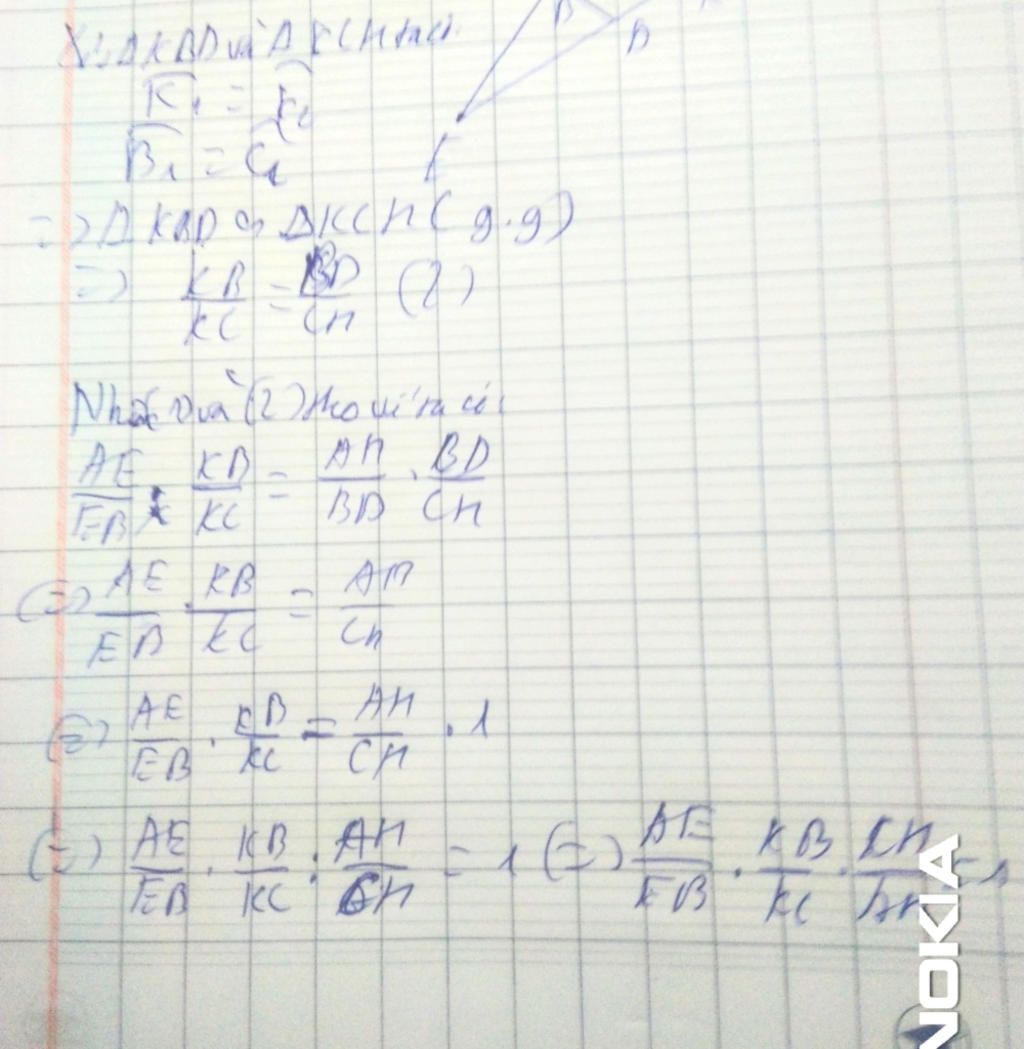 B
D
Xét Δ KBD và Δ KCH ta có:
K₁ = K₂
B₁ = C₁
=> Δ KBD ∽ Δ KCH (g.g)
=> KB/KC = BD/CH (2)
Nhân (1) và (2) theo vế ta có:
AE/EB . KB/KC = AH/BD . BD/CH
(=) AE/EB . KB/KC = AH/CH
(=) AE/EB . KB/KC = AH/CH . 1
(=) AE/EB . KB/KC : AH/CH = 1 (=) AE/EB . KB/KC . CH/AH = 1
NOKIA